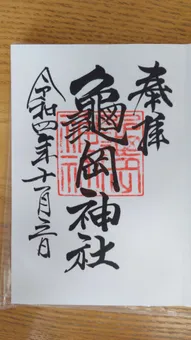 奉拝
亀岡神社
令和四年十一月三日